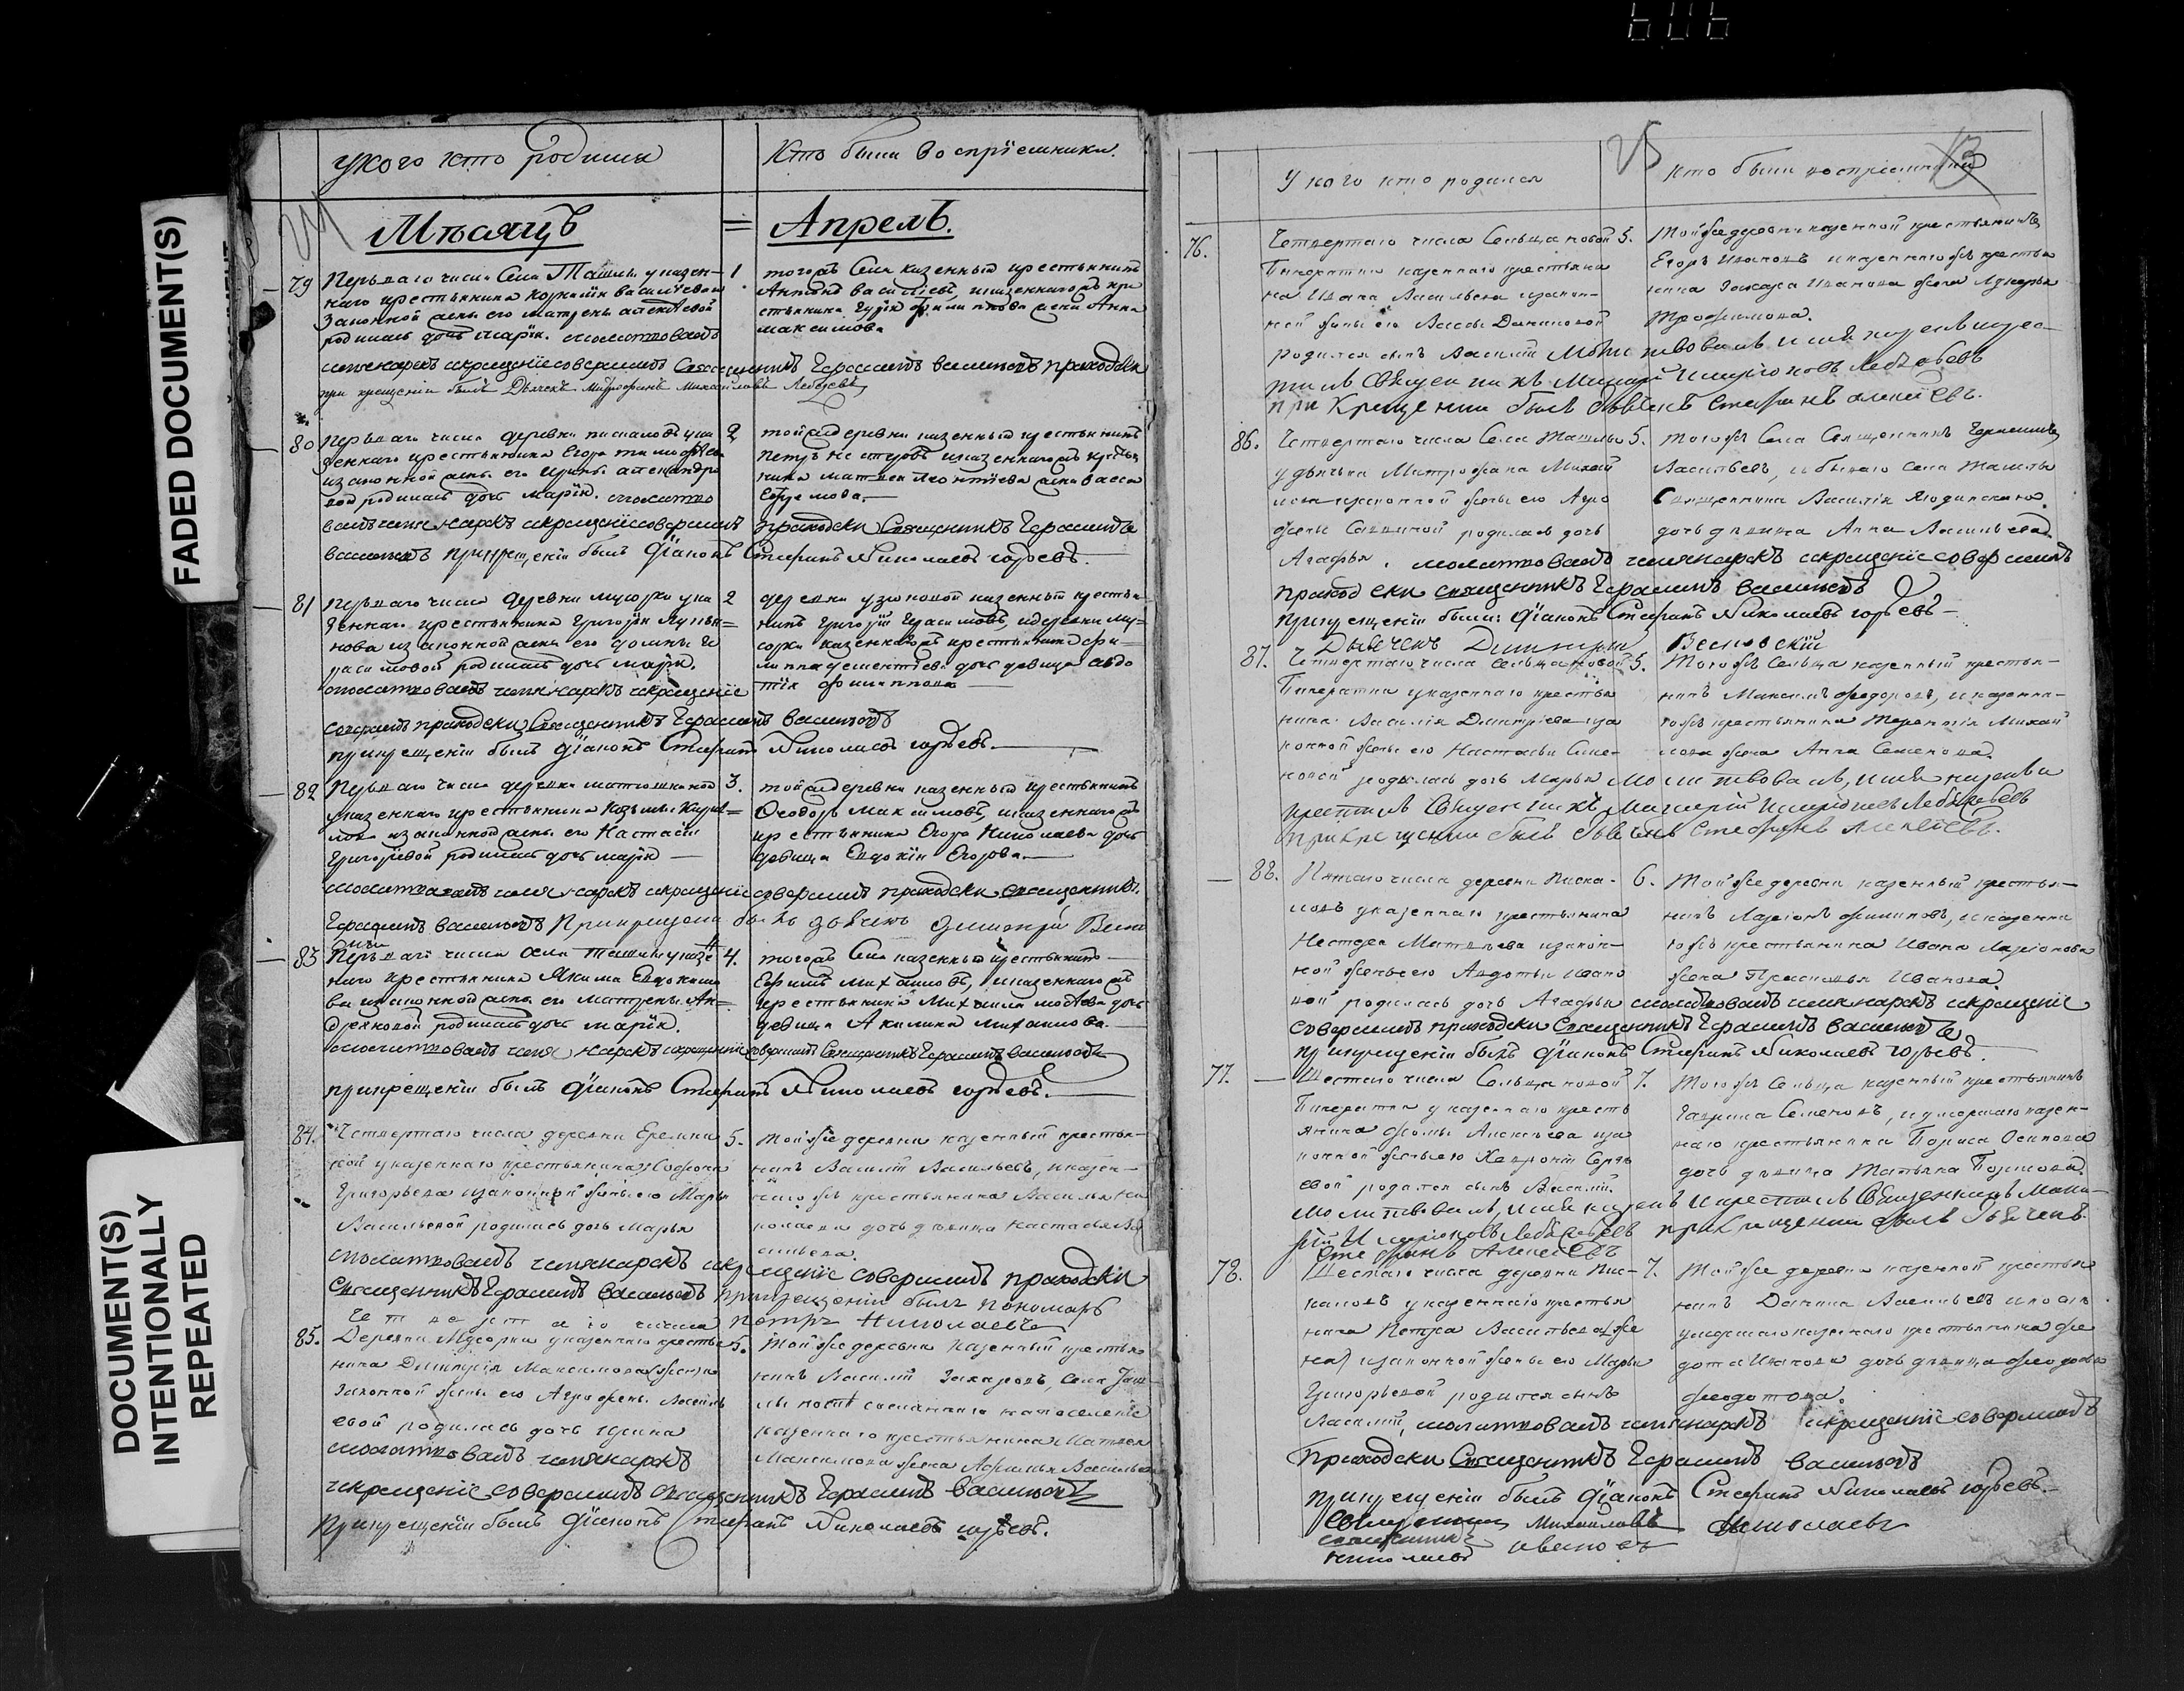 FADED DOCUMENT(S)
DOCUMENT(S)
INTENTIONALLY
REPEATED
606
у кого кто родился
Кто были воспрiемники.
Мѣсяцъ = Апрель.
79 Перьваго числа Села Ташлы у казен- 1
наго крестьянина
законной жены его Матрены
родилась дочь Марiя. молитвовалъ
тогожъ Села казенный крестьянинъ
Антонъ Васильевъ, и казеннаго жъ кре
стьянина жена Анна
Максимова
имя нарекъ и крещенiе совершилъ Священникъ Герасимъ Васильевъ приходски
при крещенiи былъ Дьячекъ Митрофанъ Михайловъ Лебедевъ
80 Перьваго числа деревни Пискаловъ у ка 2
зеннаго крестьянина Егора Тимофѣева
и законной жены его Ирины Александро
вой родилась дочь Марiя. молитво
тойже деревни казенный крестьянинъ
Петръ Несторовъ и казеннаго жъ крестья
нина Матвея Леонтiева жена Васса
валъ имя нарекъ и крещенiе совершилъ приходски Священникъ Герасимъ
Васильевъ при крещенiи былъ Дiаконъ Стефанъ Николаевъ
81 Перьваго числа деревни Мусорки у ка 2
зеннаго крестьянина Григорiя Лукья=
нова и законной жены его Домны Ге
расимовой родилась дочь Марiя.
молитвовалъ имя нарекъ и крещенiе
деревни Узюковой казенный крестья
нинъ Григорiй Герасимовъ, и деревни Му-
сорки казеннаго жъ крестьянина Фи-
липпа Дементiева дочь девица Авдо
тiя Филиппова
совершилъ приходски Священникъ Герасимъ Васильевъ
при крещенiи былъ Дiаконъ Стефанъ Николаевъ
82 Перьваго числа деревни 3.
у казеннаго крестьянина Козьмы
и законной жены его Настасiи
Григорiевой родилась дочь Марiя
тойже деревни казенный крестьянинъ
Ѳеодоръ Максимовъ, и казеннаго жъ
крестьянина Егора Николаева дочь
девица Евдокiя Егорова.
молитвовалъ имя нарекъ и крещенiе совершилъ приходски священникъ
Герасимъ Васильевъ При крещенiи былъ дьячекъ Димитри
83 числа Села Ташлы у казе 4.
наго крестьянина Якима Евдокимо
ва и законной жены его Матрены Ан=
дреяновой родилась дочь Марiя.
тогожъ Села казенный крестьянинъ
Ефимъ Михайловъ, и казеннаго жъ
крестьянина Михаила дочь
девица Акилина Михайлова.
молитвовалъ имя нарекъ и крещенiе совершилъ Священникъ Герасимъ Васильевъ
при крещенiи былъ Дiаконъ Стефанъ Николаевъ
84. Четвертаго числа деревни Еремки 5.
ной у казеннаго крестьянина Софона
Григорьева и законной жены его Марьи
Васильевой родилась дочь Марья
Той же деревни казенный крестья-
нинъ Василий Васильевъ, и казен-
наго жъ крестьянина Василья Ни
колаева дочь девица Настасья Ва
сильева.
молитвовалъ имя нарекъ и крещенiе совершилъ приходски
Священникъ Герасимъ Васильевъ при крещенiи былъ пономарь
Четвертаго числа Петръ Николаевъ
85. Деревни Мусорки у казеннаго крестья 5.
нина Димитрiя Максимова
законной жены его Агрофены Василь
евой родилась дочь Ирина
молитвовалъ имя нарекъ
Той же деревни казенный крестья
нинъ Василий Захаровъ, Села Таш-
лы сосланнаго на поселенiе
казеннаго крестьянина Матвея
Максимова жена Афимья Васильева
и крещенiе совершилъ Священникъ Герасимъ Васильевъ
При крещенiи былъ Дiаконъ Стефанъ Николаевъ
25
У кого кто родился
кто были воспрiемники
76. Четвертаго числа Сельца новой 5.
Бинаратки казеннаго крестьяни
на Ивана Васильева и закон-
ной жены его Вассы Даниловой
родился сынъ Василий
Той же деревни казенной крестьянинъ
Егоръ Ивановъ и казеннаго жъ крестья
нина Захара Иванова жена Лукерья
Трофимова.
Молитвовалъ имя нарекъ и крес
тилъ Священникъ Макарiй Иларiоновъ Лебедевъ
при Крещенiи былъ дьячекъ Стефанъ Алексѣевъ.
86. Четвертаго числа Села Ташлы 5.
у дьячька Митрофана Михай
лова и законной жены его Агро
фены Саввиной родилась дочь
Агафья.
Того жъ Села Священникъ Герасимъ
Васильевъ, и бывшаго Села Ташлы
Священника Василiя
дочь девица Анна Васильева
молитвовалъ имя нарекъ и крещенiе совершилъ
приходски священникъ Герасимъ Васильевъ
при крещенiи были: Дiаконъ Стефанъ Николаевъ
Дьячекъ Димитрiй
87. Четвертаго числа Сельца новой 5.
Бинаратки у казеннаго крестья
нина Василiя Димитрiева и за
конной жены его Настасьи Семе-
новой родилась дочь Марья
Того жъ Сельца казенный крестья-
нинъ Максимъ Федоровъ, и казенна-
го жъ крестьянина Терентiя Михай
лова жена Анна Семенова
Молитвовалъ, имя нарекъ и
крестилъ Священникъ Макарiй Иларiоновъ Лебедевъ
при крещенiи былъ дьячекъ Стефанъ Алексѣевъ.
88. Пятаго числа деревни Писка- 6.
ловъ у казеннаго крестьянина
Нестера Матвѣева и закон-
ной жены его Авдотьи Ивано
вой родилась дочь Агафья
Той же деревни казенный крестья-
нинъ Ларiонъ Филиповъ, и казенна
го жъ крестьянина Ивана Ларiонова
жена Прасковья Иванова
молитвовалъ имя нарекъ и крещенiе
совершилъ приходски Священникъ Герасимъ Васильевъ
при крещенiи былъ Дiаконъ Стефанъ Николаевъ
77. Шестаго числа Сельца новой 7.
Бинаратки у казеннаго кресть
янина Фомы Алексѣева и за
конной жены его Хавронiи Серге
евой родился сынъ Василий.
Того жъ Сельца казенный крестьянинъ
Гаврила Семеновъ, и умершаго казен-
наго крестьянина Бориса Осипова
дочь девица Татьяна Борисова
Молитвовалъ, имя нарекъ и крестилъ Священникъ Мака-
рiй Иларiоновъ Лебедевъ при крещенiи былъ дьячекъ
Стефанъ Алексѣевъ
78. Шестаго числа деревни Пис- 7.
каловъ у казеннаго крестья
нина Петра Васильева
и законной жены его Марьи
Григорьевой родился сынъ
Василий,
Той же деревни казенной крестья
нинъ Данила Васильевъ и
умершаго казеннаго крестьянина Фе
дота Иванова дочь девица
Федотова.
молитвовалъ имя нарекъ и крещенiе совершилъ
Приходски Священникъ Герасимъ Васильевъ
при крещенiи былъ Дiаконъ Стефанъ Николаевъ
Михайловъ Николаевъ
Ивановъ